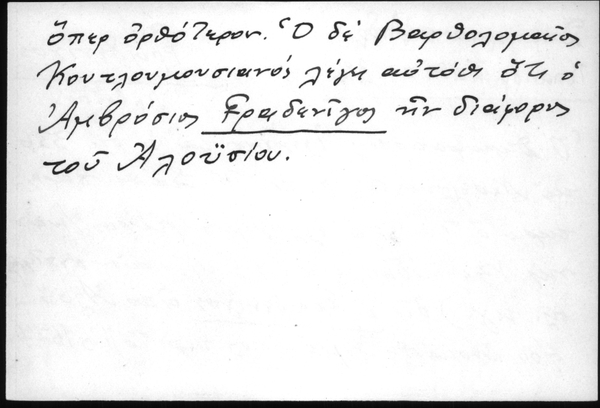 ὅπερ ὀρθότερον. Ὁ δὲ Βαρθολομαῖος
Κουτλουμουσιανός λέγει αὐτόθι ὅτι ὁ
Ἀμβρόσιος Γραδενῖγος ἦν διάφορος
τοῦ Ἀλοϋσίου.